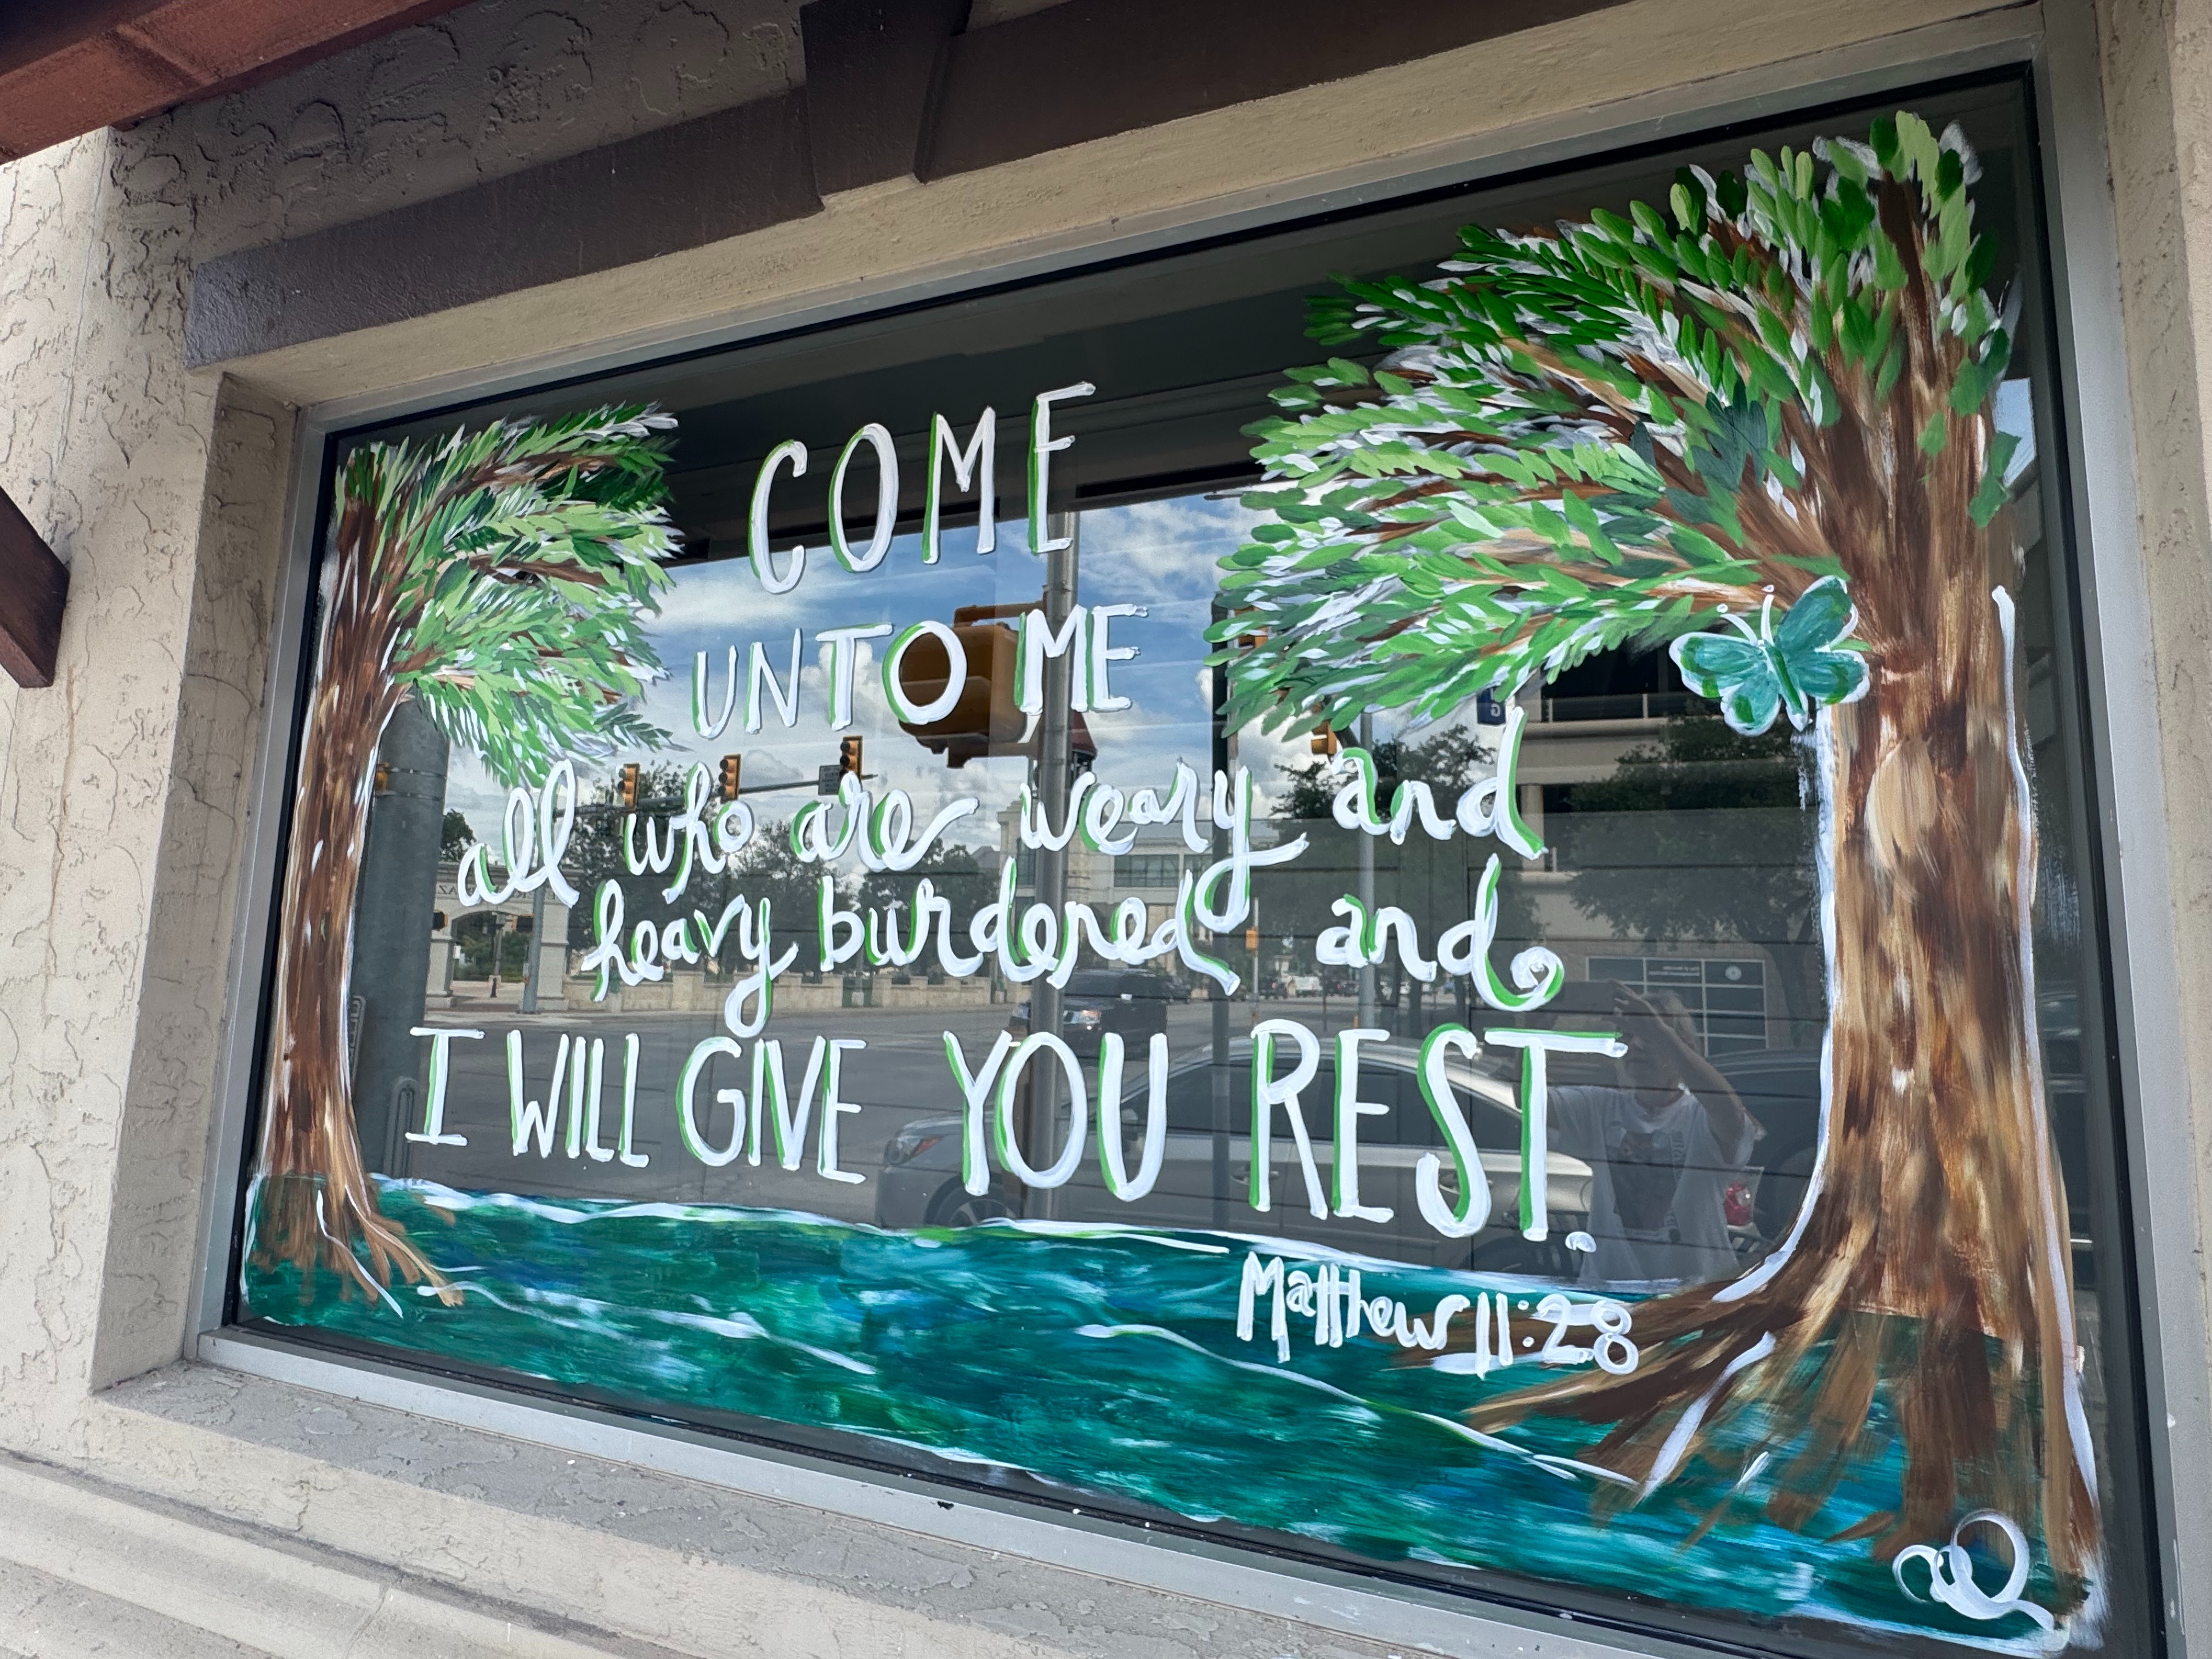 COME
UNTO ME
all who are weary and
heavy burdened and
I WILL GIVE YOU REST.
Matthew 11:28